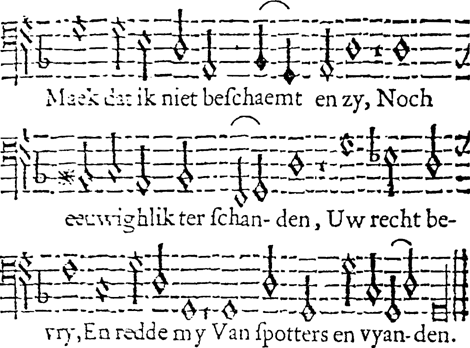 Maek dat ik niet beſchaemt en zy, Noch
eeuwighlik ter ſchan-den, Uw recht be-
vry, En redde my Van ſpotters en vyan-den.